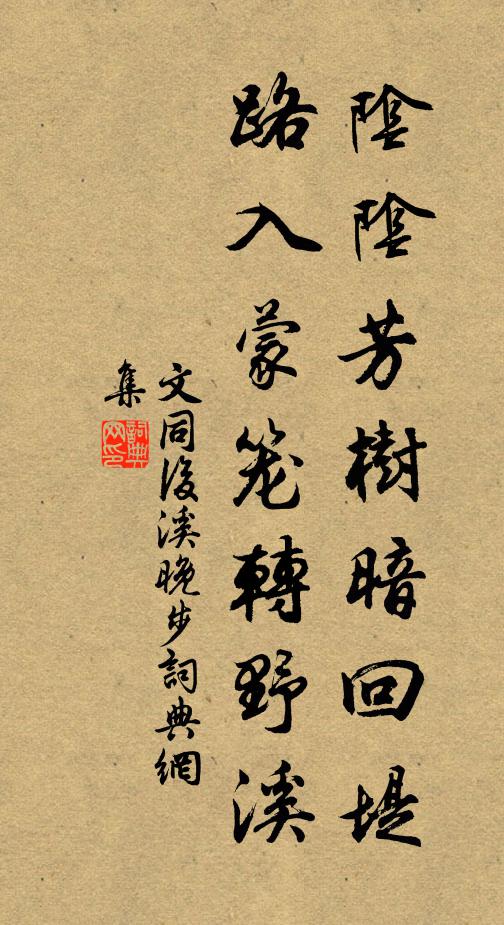 陰陰芳樹暗回堤
路入蒙笼轉野溪
文同後溪晚步詞典網
集
詞典
网印